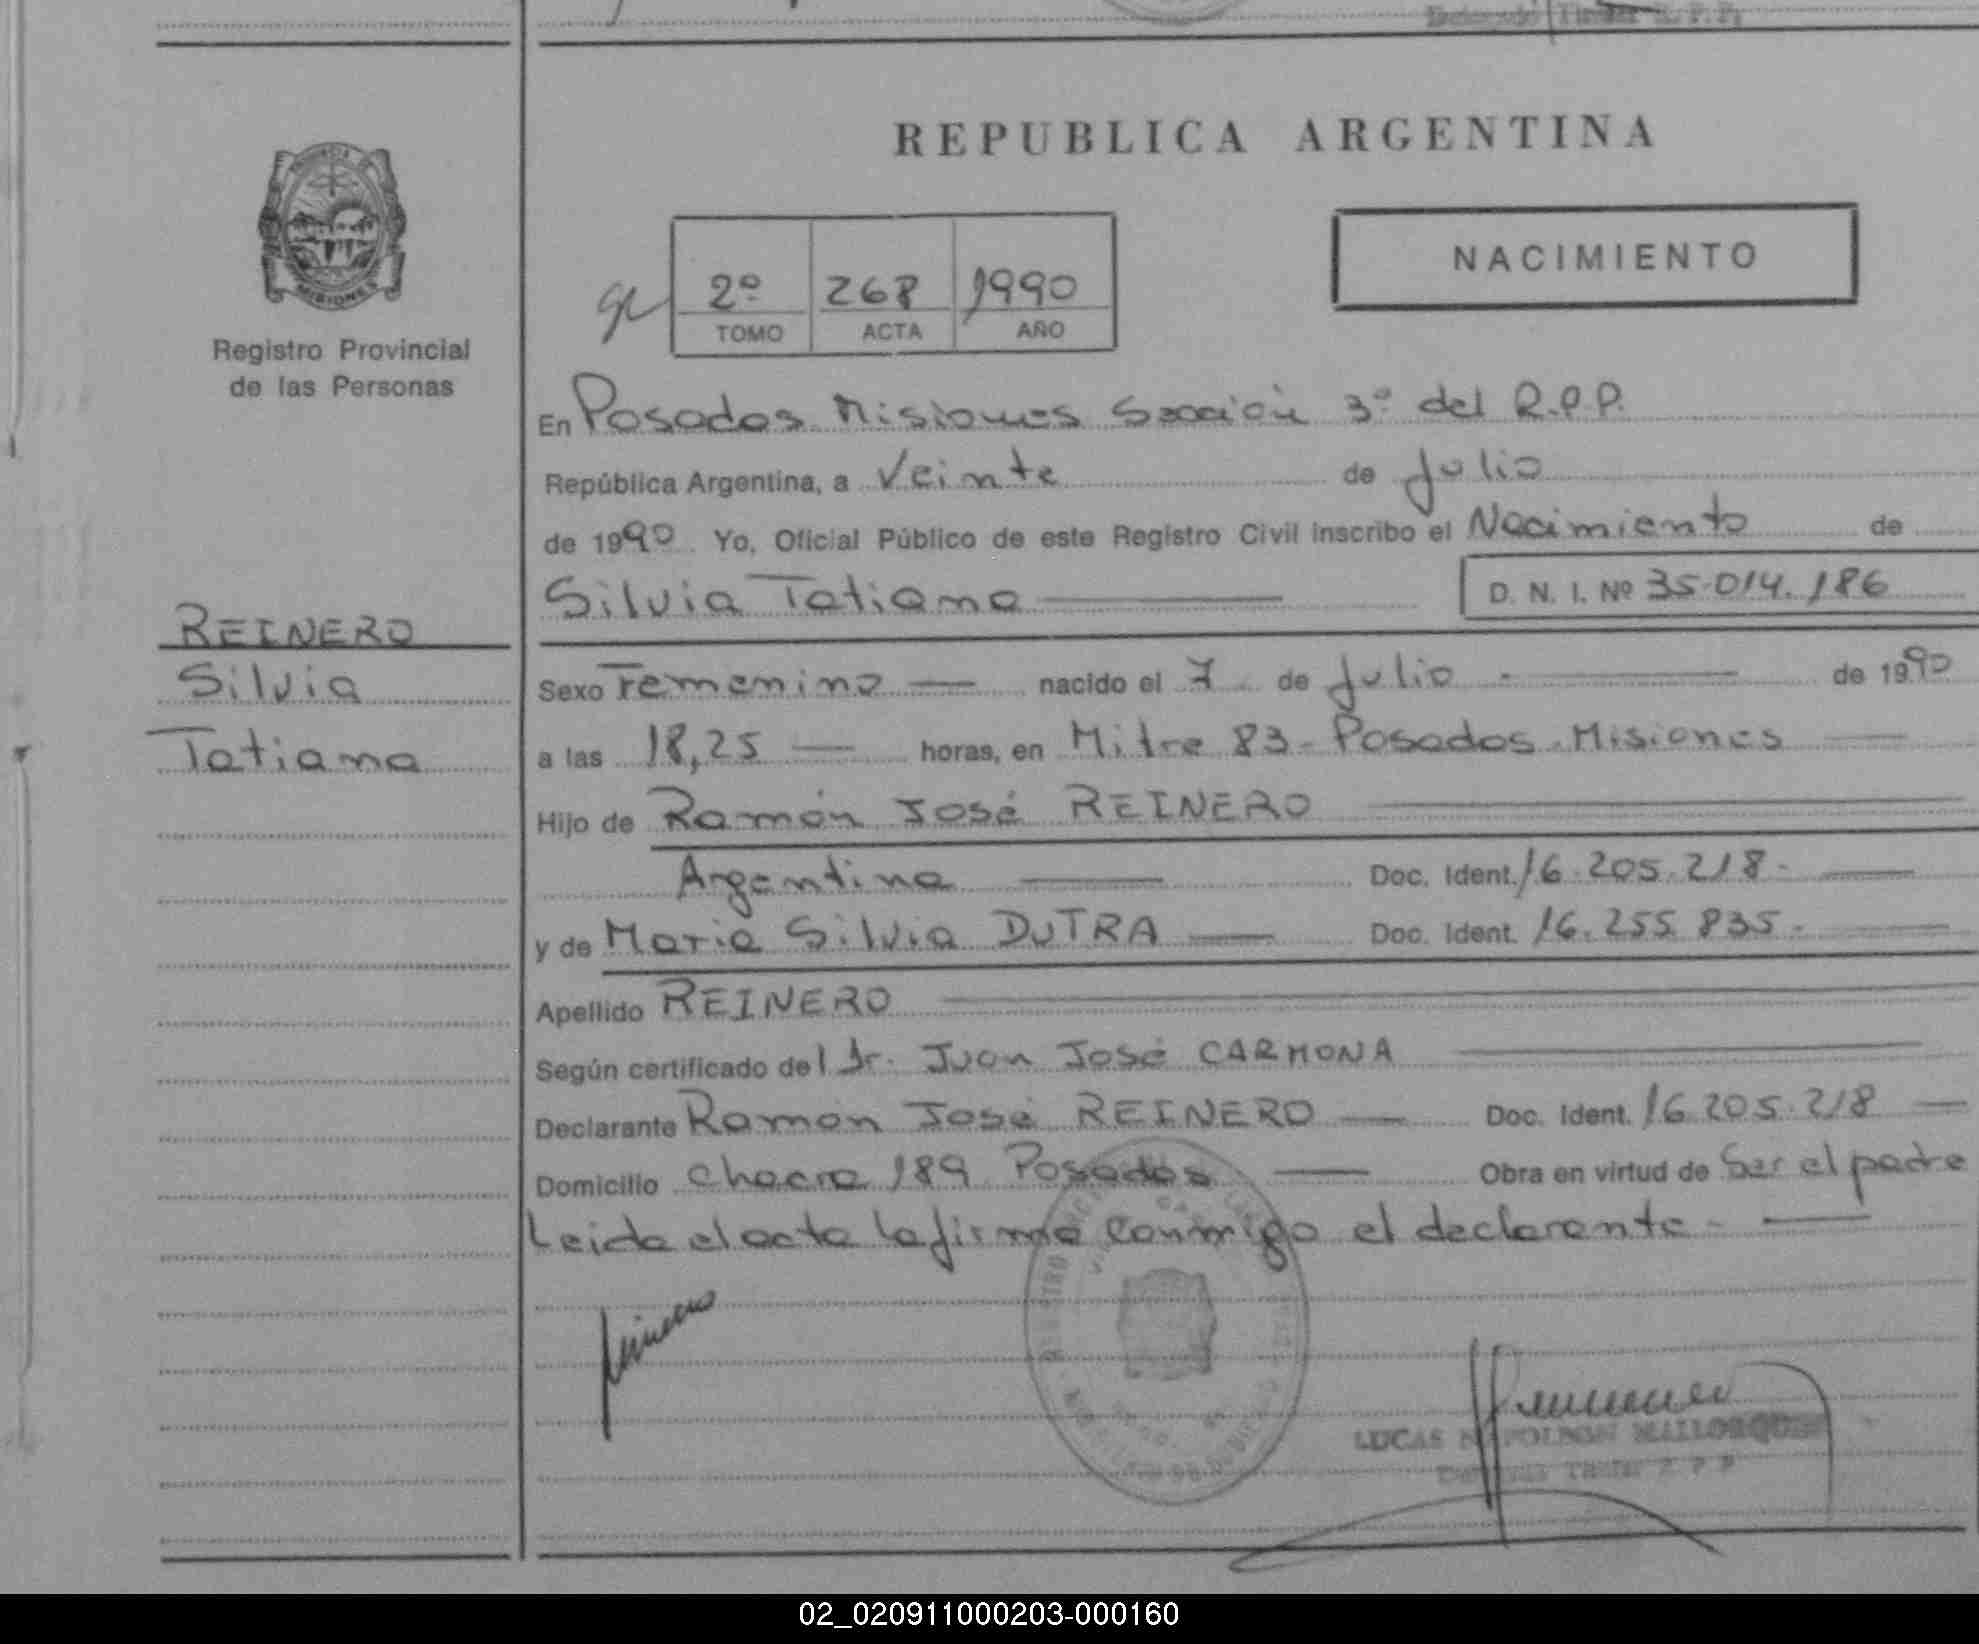 REPUBLICA ARGENTINA
PROVINCIA DE
MISIONES
Registro Provincial
de las Personas
NACIMIENTO
2º 268 1990
TOMO ACTA AÑO
En Posadas Misiones Sección 3º del R.P.P.
República Argentina, a Veinte de Julio
de 1990 Yo, Oficial Público de este Registro Civil inscribo el Nacimiento de
Silvia Tatiana D. N. I. Nº 35.014.186
REINERO
Silvia
Tatiana
Sexo Femenino nacido el 7 de Julio de 1990
a las 18,25 horas, en Mitre 83 - Posadas - Misiones
Hijo de Ramón José REINERO
Argentina Doc. Ident. 16.205.218-
y de Maria Silvia DUTRA Doc. Ident. 16.255.835-
Apellido REINERO
Según certificado del Dr. Juan José CARMONA
Declarante Ramón José REINERO Doc. Ident. 16.205.218
Domicilio Chacra 189 Posadas Obra en virtud de Ser el padre
Leida el acta la firma conmigo el declarante -
LUCAS NAPOLEON
02_020911000203-000160